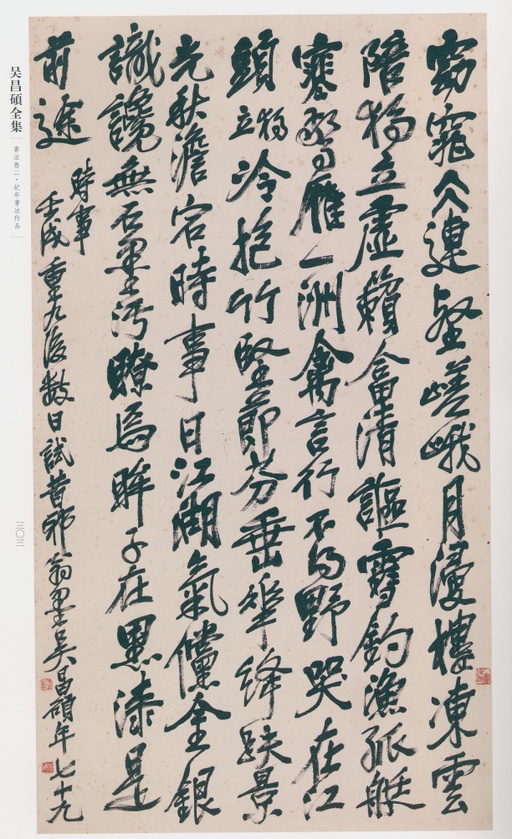 窈窕久連壑嵯峨月漫樓凍雲
陪獨立虛籟含清謳雪釣漁孤艇
寒雁一洲禽言行不得野哭在江
頭獨立冷抱竹堅節芬垂華絳跌景
光秋澹宕時事日江湖氣儻金銀
識讒無石墨污瞭焉眸子在黑漆是
前途
時事
壬戌重九後數日試昔邪翁墨吳昌碩年七十九
吴昌碩全集
書法卷二·紀年書法作品
三〇三